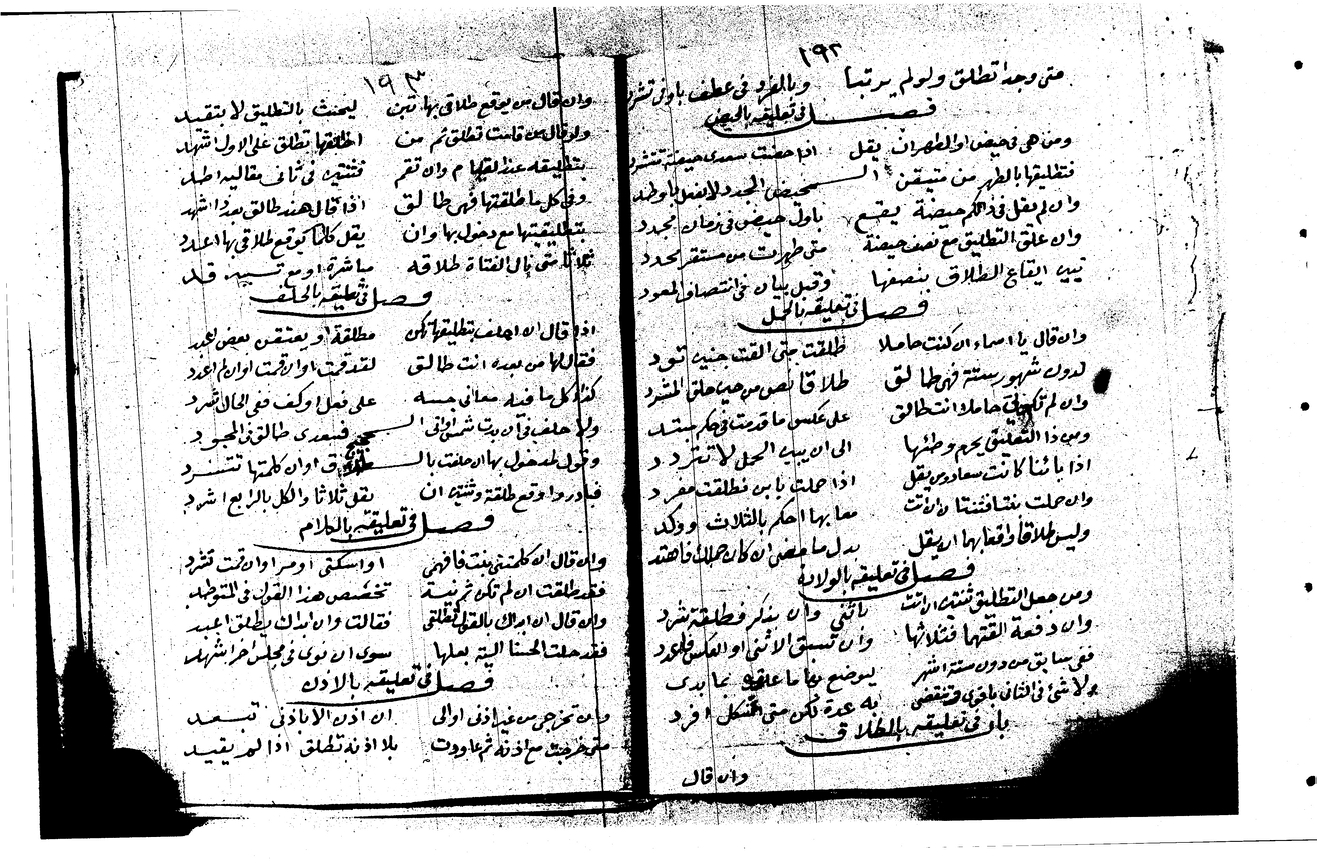 ١٩٢
متى وجدا تطلق ولو لم يرتبا وبالفرد في عطف باو في تشرد
فصل في تعليقه بالحيض
ومن هي في حيض او الطهران يقل اذا حضت سعدى حيضة تتشرد
فتطليقها بالطهر من متيقن الحيض المجدد لا بغسل باوطد
وان لم يقل في ذالكم حيضة يقع باول حيض في زمان مجدد
وان علق التطليق مع نصف حيضة متى طهرت من مستقر محدد
تبين ايقاع الطلاق بنصفها وقبل بيان في انتصاف المعود
فصل في تعليقه بالحمل
وان قال يا اسماء ان كنت حاملا طلقت متى القت جنين تود
لدون شهور ستة فهي طالق طلاقا بنص من حين حلق المشرد
وان لم تكوني حاملا انت طالق على عكس ما قدمت في حكم مبتد
ومن ذا التعليق يحرم وطئها الى ان يبين الحمل لا تتردد
اذا بائنا كانت سعاد ومن يقل اذا حملت بابن فطلقت مفرد
وان حملت بنتا فثنتان ان اتت معا بها احكم بالثلاث ووكد
وليس طلاقا واقعا بهما ان يقل بدل ما مضى ان كان حملك فاهتد
فصل في تعليقه بالولادة
ومن جعل التطليق ثنتين ان اتت بانثى وان بذكر فطلقة شرد
وان دفعة القتهما فثلاثها وان تسبق الانثى او العكس فاعدد
ففي سابق من دون ستة اشهر بوضع بها ما علقوه بما بدي
ولا شئ في الثاني باقوى وتنقضي به عدة لكن متى اشكل افرد
باب في تعليقه بالطلاق
وان قال
١٩٣
وان قال من يوقع طلاقي بها تبن ليحنث بالتطليق لا بتقيد
ولو قال من قامت تطلق ثم من اطلقها تطلق على الاول اشهد
بتطليقه عند لقيام وان تقم فثنتين في ثاني مقاليه اطد
وفي كل ما طلقتها فهي طالق اذا قال هند طالق بعد ذا اشهد
بتطليقتها مع دخول بها وان يقل كلما يوقع طلاقي بها اعدد
ثلاثا متى ينل الفتاة طلاقه مباشرة او مع تسبب قد
فصل في تعليقه بالحلف
اذا قال ان احلف بتطليقها تكن مطلقة او يعتقن بعض اعبد
فقال لها من بعده انت طالق لقد قمت او ان قمت او ان لم اغد
كذا كل ما فيه معاني جسه على فعل او كف ففي الحال شرد
ولا حلف في ان بدت شمس افق السما فسعدى طالق في المجود
وقول لمدخول بها ان حلفت بالطلاق او ان كلمتها تتشرد
فبادر واوقع طلقة وثنتين ان يقل ثلاثا والكل بالرابع اشرد
فصل في تعليقه بالكلام
وان قال ان كلمتني بنت فافهمي او اسكتي او مر او ان قمت تشرد
فقد طلقت ان لم تكن ثم نية تخصص هذا القول في المتوطد
وان قال ان ابداك بالقول تطلقي فقالت وان ابداك يطلق اعبد
فقد حلت الحسنا اليه بعلها سوى ان نوى في مجلس اخر اشهد
فصل في تعليقه بالاذن
وان تخرجي من غير اذني او الى ان اذن الا باذني تبعد
متى خرجت مع اذنه ثم عاودت بلا اذنه تطلق اذا لم يقيد